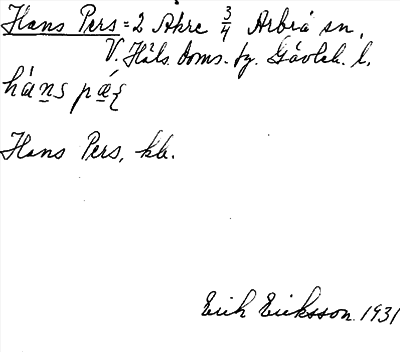 Hans Pers = 2 Åkre 3/4 Arbrå sn,
V. Häls. doms. fg. Gävleb. l.
hán̲s pǽ̲ʂ
Hans Pers, kb.
Erik Eriksson 1931